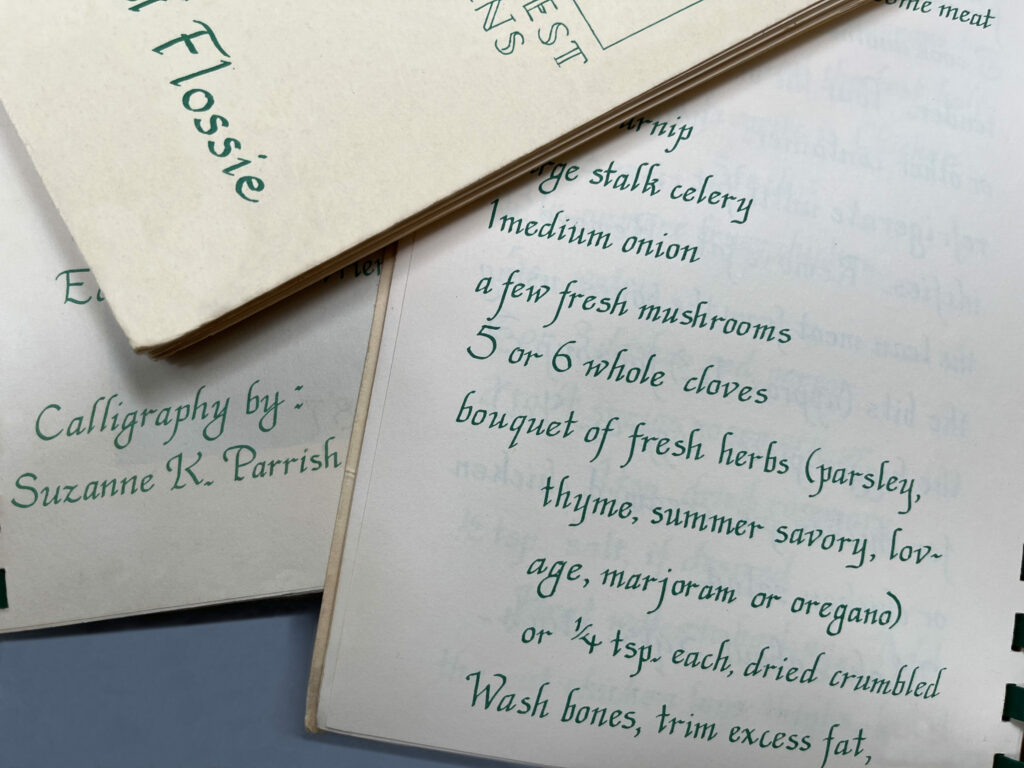 Flossie
EST
NS
Calligraphy by:
Suzanne K. Parrish
some meat
stalk celery
1 medium onion
a few fresh mushrooms
5 or 6 whole cloves
bouquet of fresh herbs (parsley,
thyme, summer savory, lov-
age, marjoram or oregano)
or ¼ tsp. each, dried crumbled
Wash bones, trim excess fat,